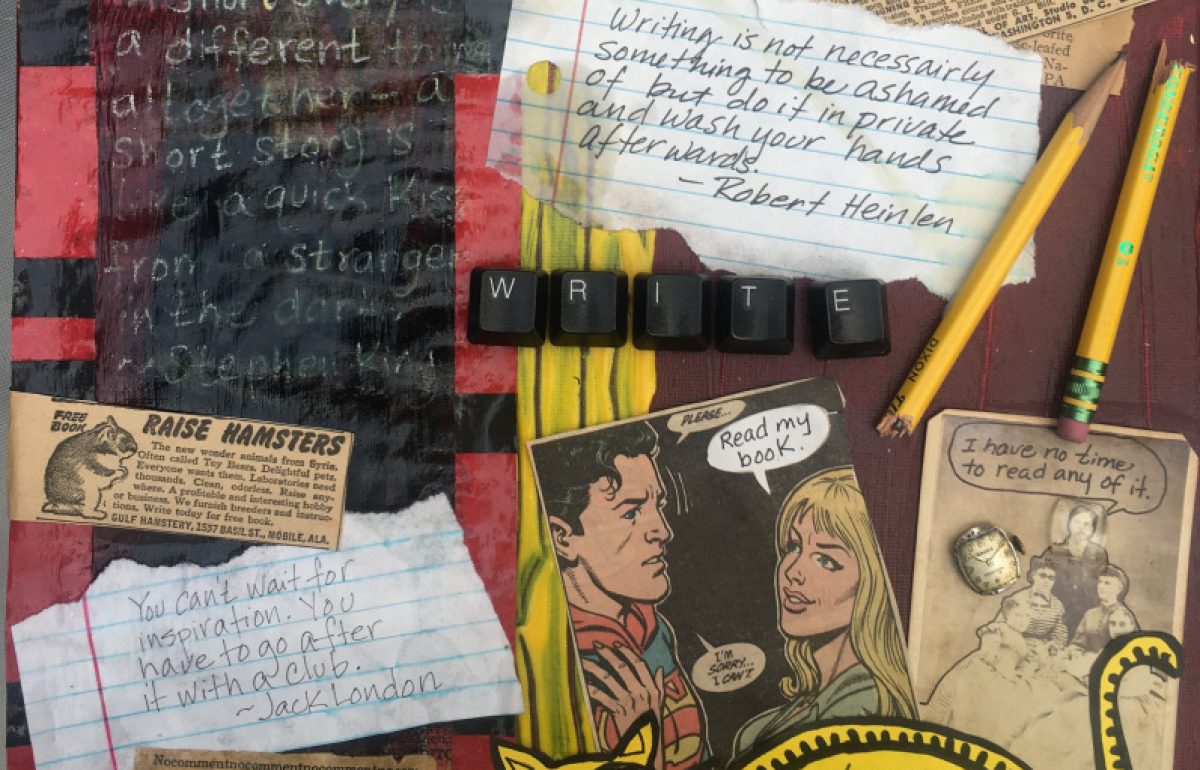 a different thing
altogether – a
short story is
like a quick kiss
from a stranger
in the dark.
~ Stephen King
Writing is not necessairly
something to be ashamed
of but do it in private
and wash your hands
afterwards.
– Robert Heinlen
OF ART, Studio
WASHINGTON 5, D. C.
W R I T E
DIXON
FREE
BOOK
RAISE HAMSTERS
The new wonder animals from Syria.
Often called Toy Bears. Delightful pets.
Everyone wants them. Laboratories need
thousands. Clean, odorless. Raise any-
where. A profitable and interesting hobby
or business. We furnish breeders and instruc-
tions. Write today for free book.
GULF HAMSTERY, 1537 BASIL ST., MOBILE, ALA.
You can't wait for
inspiration. You
have to go after
it with a club.
~Jack London
PLEASE...
Read my
book.
I'M
SORRY...
I CAN'T.
I have no time
to read any of it.
Nocommentnocommentnocommentnocomment